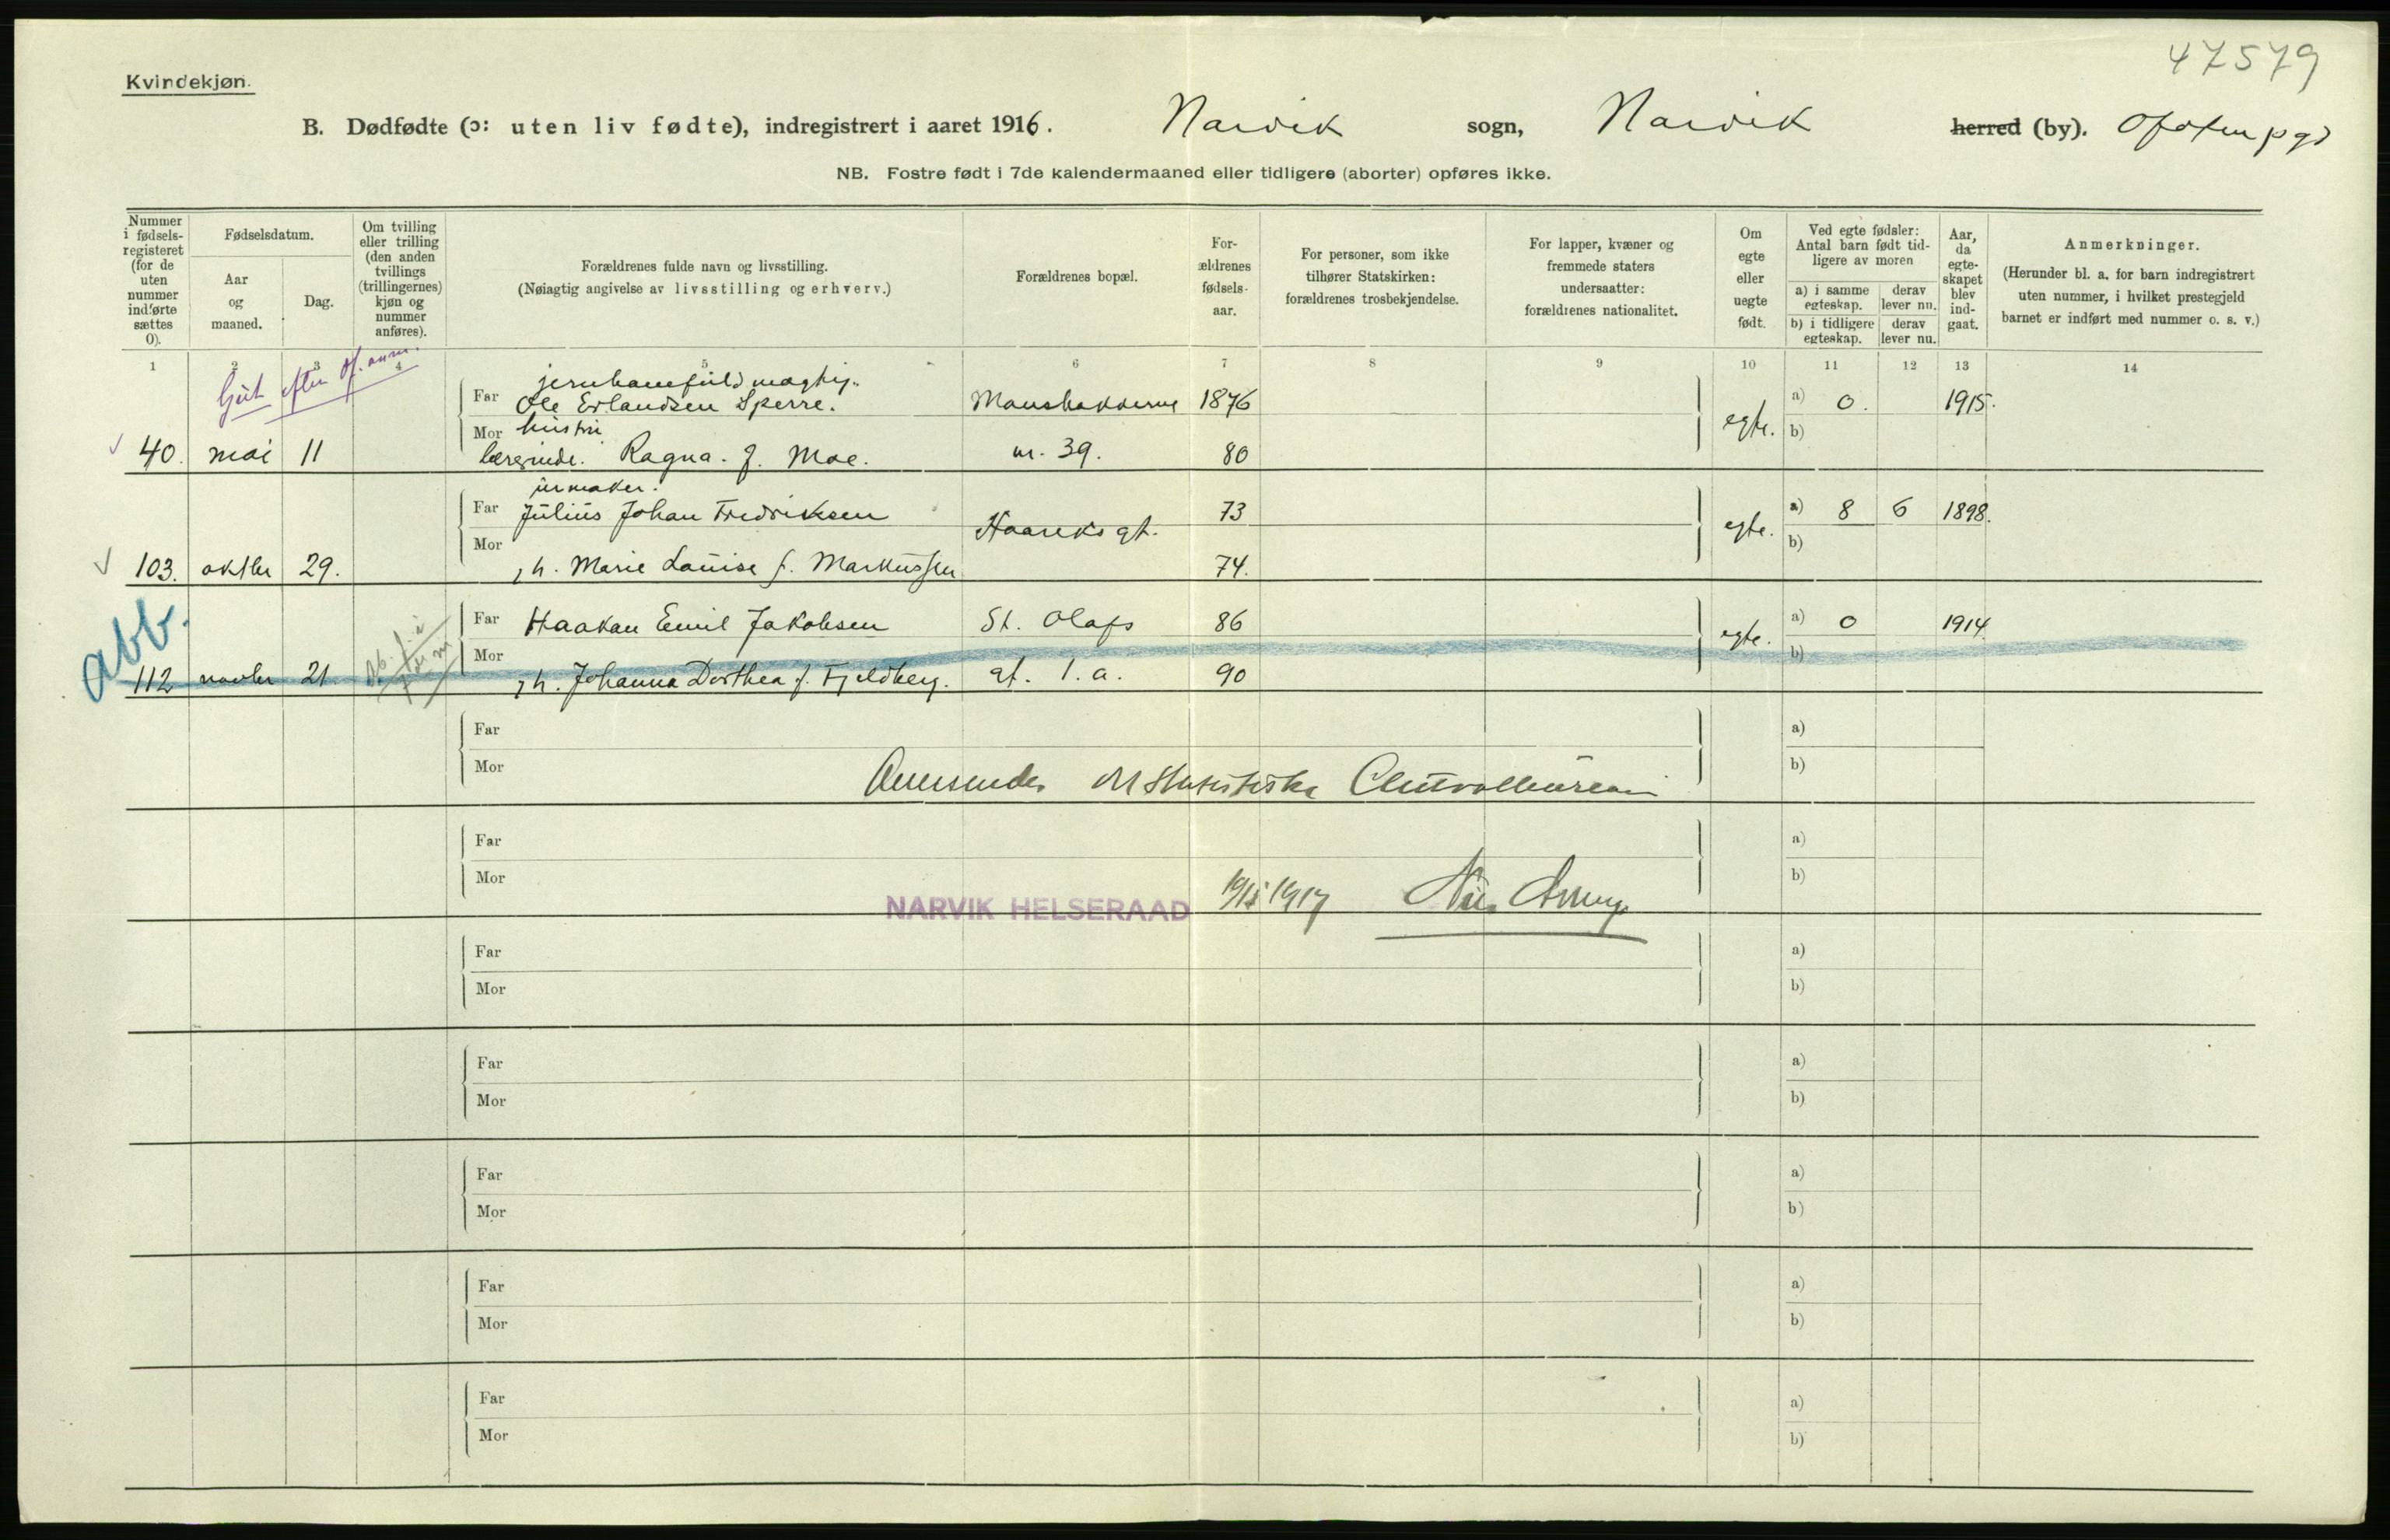 47579
Kvindekjøn.
B. Dødfødte (ɔ: uten liv fødte), indregistrert i aaret 1916. Narvik sogn, Narvik herred (by). Ofoten pgd
NB. Fostre født i 7de kalendermaaned eller tidligere (aborter) opføres ikke.
Nummer i fødselsregisteret (for de uten nummer indførte sættes 0).
Fødselsdatum.
Aar og maaned.
Dag.
Om tvilling eller trilling (den anden tvillings (trillingernes) kjøn og nummer anføres).
Forældrenes fulde navn og livsstilling.
(Nøiagtig angivelse av livsstilling og erhverv.)
Forældrenes bopæl.
Forældrenes fødselsaar.
For personer, som ikke tilhører Statskirken: forældrenes trosbekjendelse.
For lapper, kvæner og fremmede staters undersaatter: forældrenes nationalitet.
Om egte eller uegte født.
Ved egte fødsler: Antal barn født tidligere av moren
a) i samme egteskap.
derav lever nu.
b) i tidligere egteskap.
derav lever nu.
Aar, da egteskapet blev indgaat.
Anmerkninger.
(Herunder bl. a. for barn indregistrert uten nummer, i hvilket prestegjeld barnet er indført med nummer o. s. v.)
1 2 3 4 5 6 7 8 9 10 11 12 13 14
Gut efter
jernbanefuldmægtig.
Far Ole Erlandsen Sperre. 1876 a) 0. 1915.
Mor hustru egte. b)
40. mai 11 lærerinde. Ragna. f. Moe. nr. 39. 80
urmaker.
Far Julius Johan Fredriksen Haareks gt. 73 a) 8 6 1898.
Mor egte. b)
103. oktbr 29. h. Marie Louise f. Markussen 74.
abb.
Far Haakan Emil Jakobsen St. Olafs 86 a) 0 1914
Mor egte. b)
112 novbr 21. h. Johanna Dorthea f. Fjeldberg. gt. 1. a. 90
Far a)
Mor b)
det statistiske Centralbureau
Far a)
Mor b)
NARVIK HELSERAAD 1917
Far a)
Mor b)
Far a)
Mor b)
Far a)
Mor b)
Far a)
Mor b)
Far a)
Mor b)